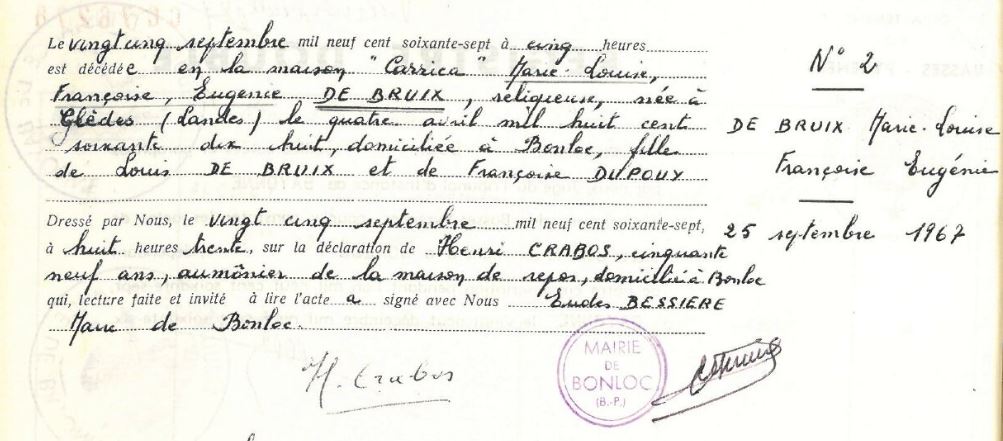 Le vingt cinq septembre mil neuf cent soixante-sept à cinq heures
est décédée en la maison "Carrica" Marie-Louise,
Françoise, Eugénie DE BRUIX, religieuse, née à
Clèdes (Landes) le quatre avril mil huit cent
soixante dix huit, domiciliée à Bonloc, fille
de Louis DE BRUIX et de Françoise DUPOUY
Dressé par Nous, le vingt cinq septembre mil neuf cent soixante-sept,
à huit heures trente, sur la déclaration de Henri CRABOS, cinquante
neuf ans, aumônier de la maison de repos, domicilié à Bonloc
qui, lecture faite et invité à lire l'acte a signé avec Nous Eudes BESSIERE
Maire de Bonloc.
N° 2
DE BRUIX Marie-Louise
Françoise Eugénie
25 septembre 1967
H. Crabos
MAIRIE
DE
BONLOC
(B.-P.)